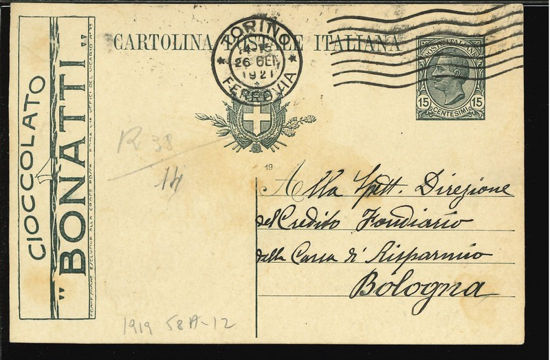 CARTOLINA LE ITALIANA
TORINO
26 GEN
1921
FERROVIA
15 15
CENTESIMI
CIOCCOLATO
"BONATTI"
R 38
14
19
Alla Spett. Direzione
del Credito Fondiario
della Cassa di Risparmio
Bologna
1919 58A-12